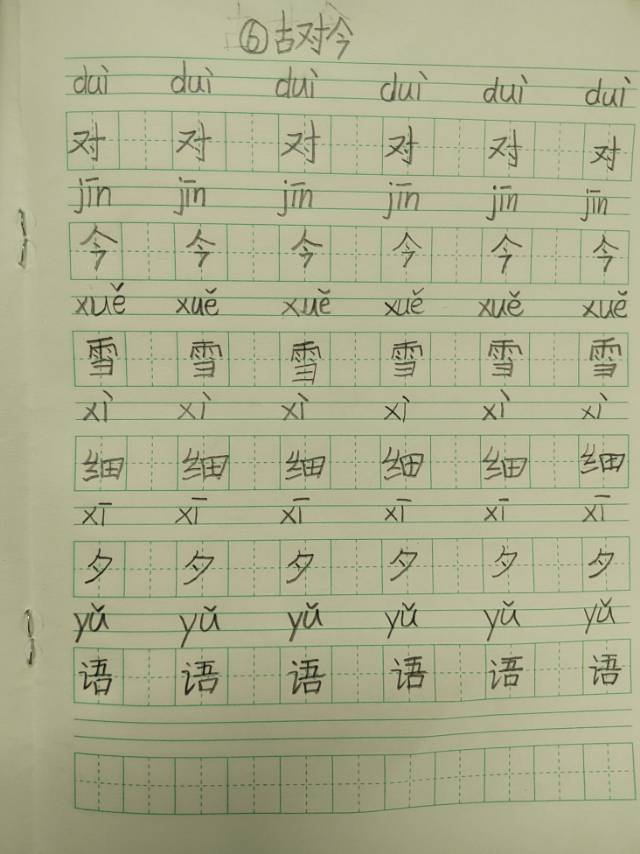 ⑥古对今
duì duì duì duì duì duì
对 对 对 对 对 对
jīn jīn jīn jīn jīn jīn
今 今 今 今 今 今
xuě xuě xuě xuě xuě xuě
雪 雪 雪 雪 雪 雪
xì xì xì xì xì xì
细 细 细 细 细 细
xī xī xī xī xī xī
夕 夕 夕 夕 夕 夕
yǔ yǔ yǔ yǔ yǔ yǔ
语 语 语 语 语 语